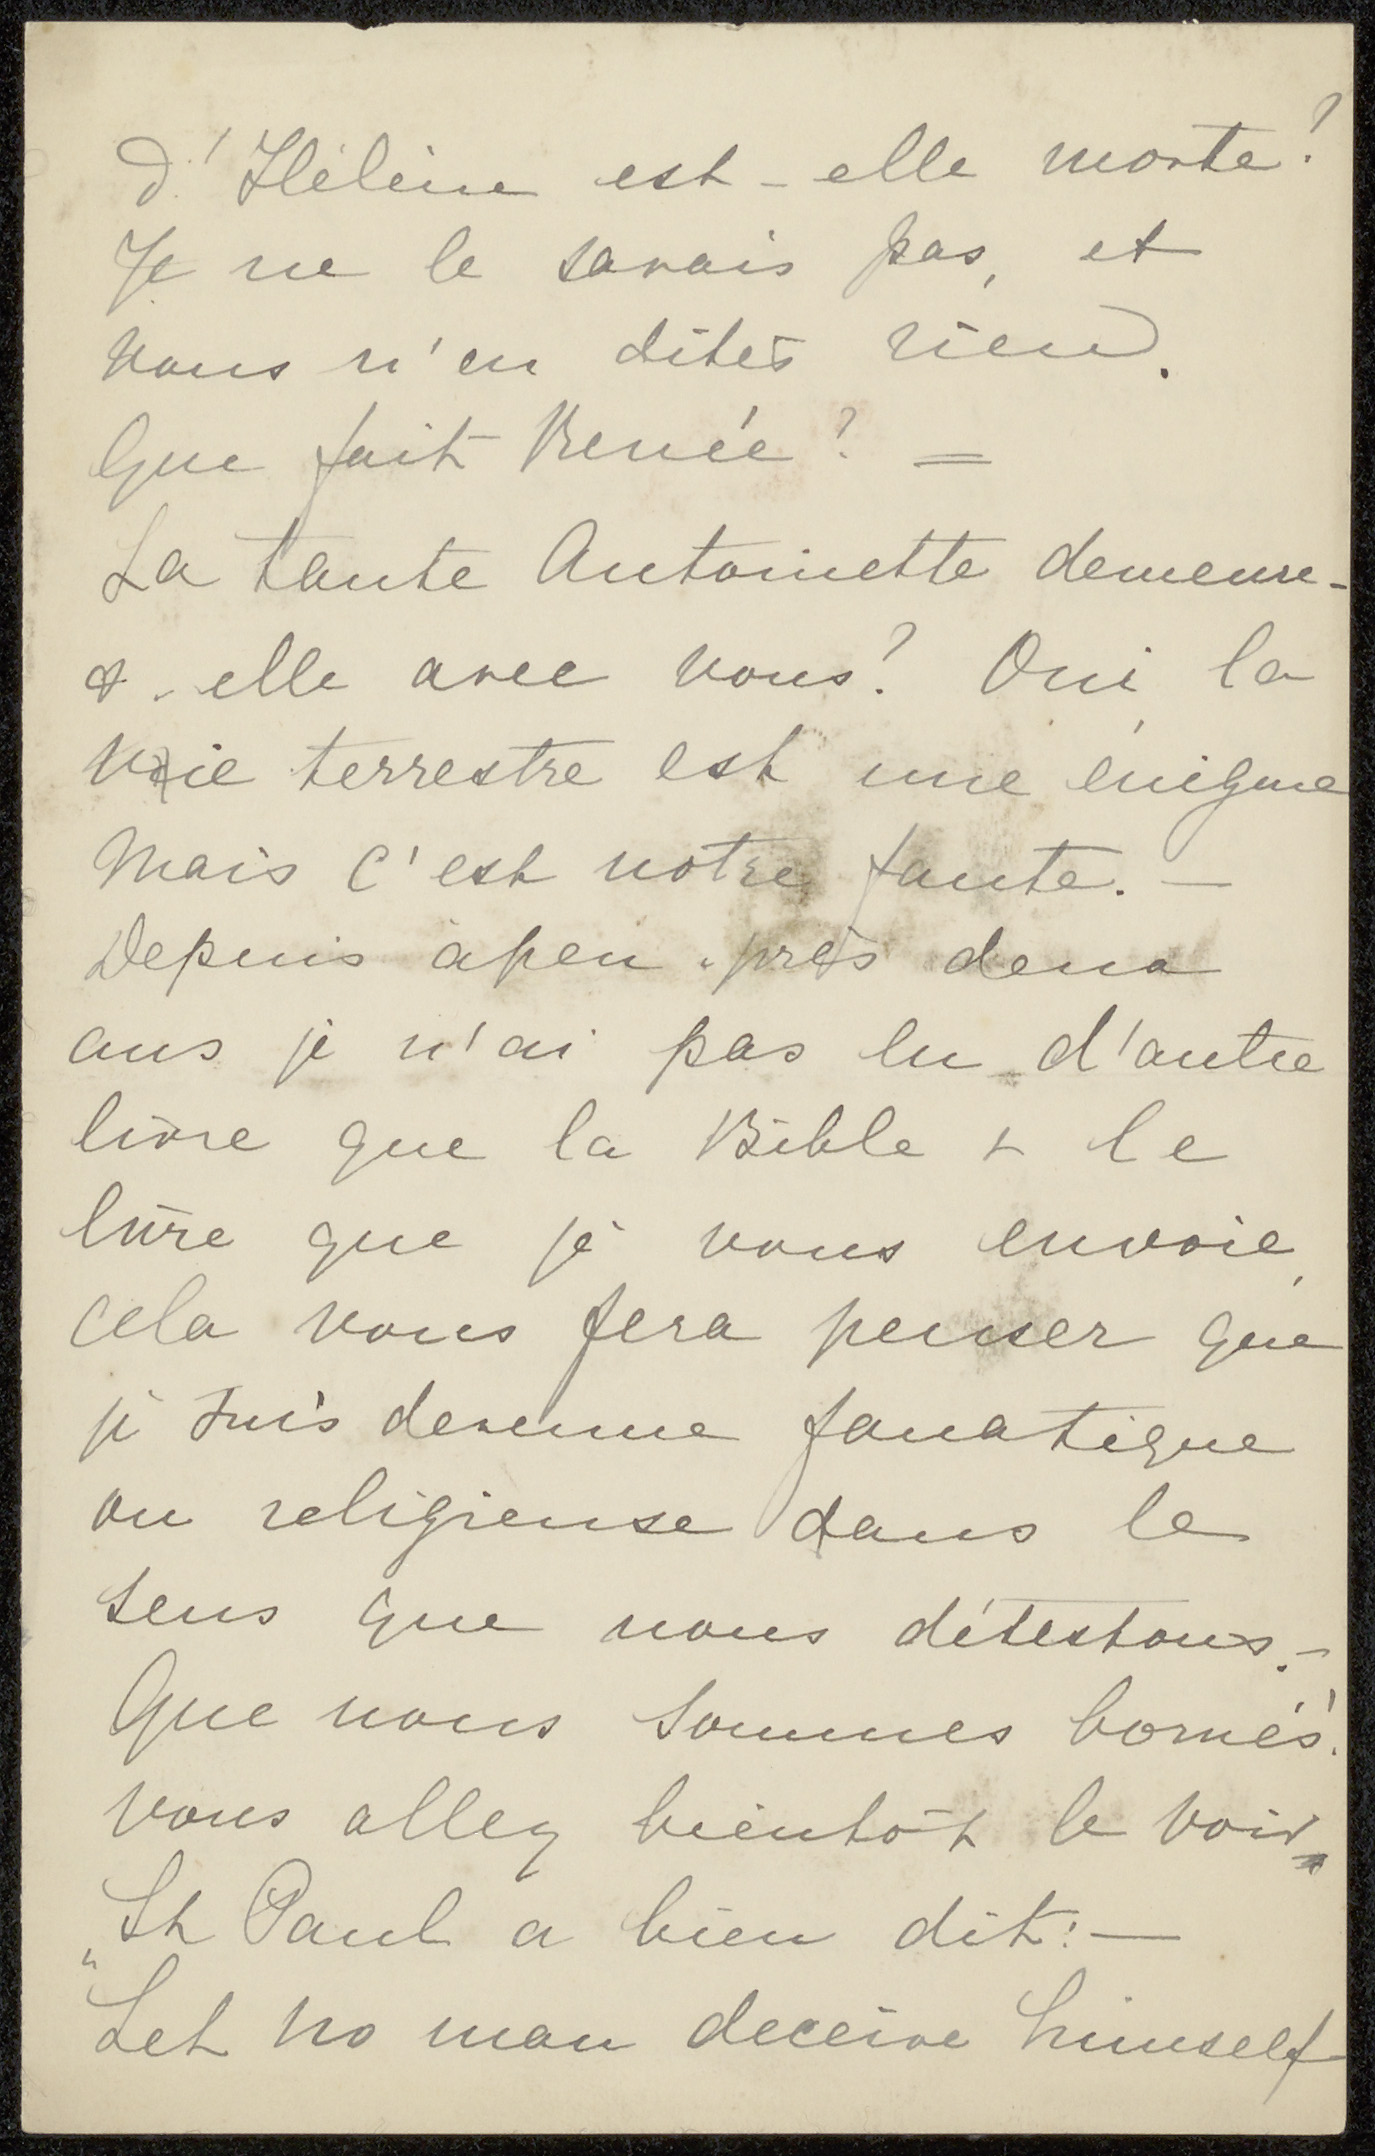 d'Hélène est-elle morte?
Je ne le savais pas, et
vous n'en dites rien.
Que fait Renée? =
La tante Antoinette demeure-
t-elle avec vous? Oui la
vie terrestre est une énigme
Mais c'est notre faute. —
Depuis àpeu-près deux
ans je n'ai pas lu d'autre
livre que la Bible & le
livre que je vous envoie,
cela vous fera penser que
je suis devenue fanatique
ou religieuse dans le
sens que nous détestons. -
Que nous sommes bornés!
vous allez bientôt le voir
St Paul a bien dit: —
"Let no man deceive himself